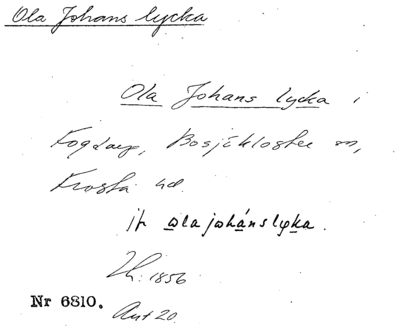 Ola Johans lycka
Ola Johans lycka i
Fogdarp, Bosjökloster sn,
Frosta hd.
ola johánslyka.
1856
Nr 6810.
Ant 20.